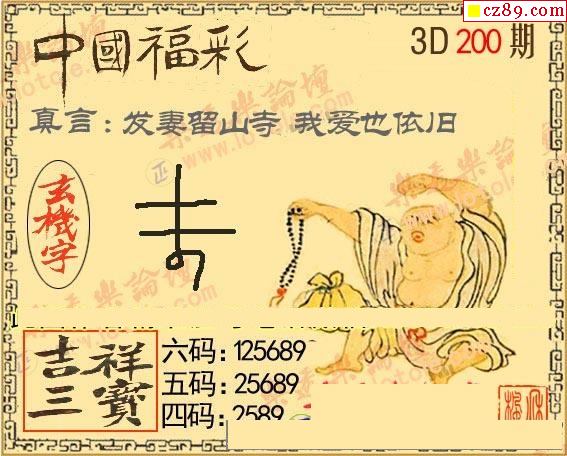 cz89.com
中國福彩
3D 200 期
真言：发妻留山寺 我爱也依旧
玄機字
吉祥三寶
六码：125689
五码：25689
四码：2589